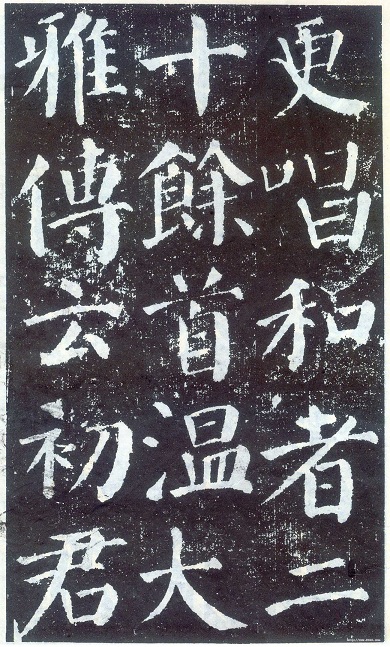 更唱和者二
十餘首温大
雅傳云初君